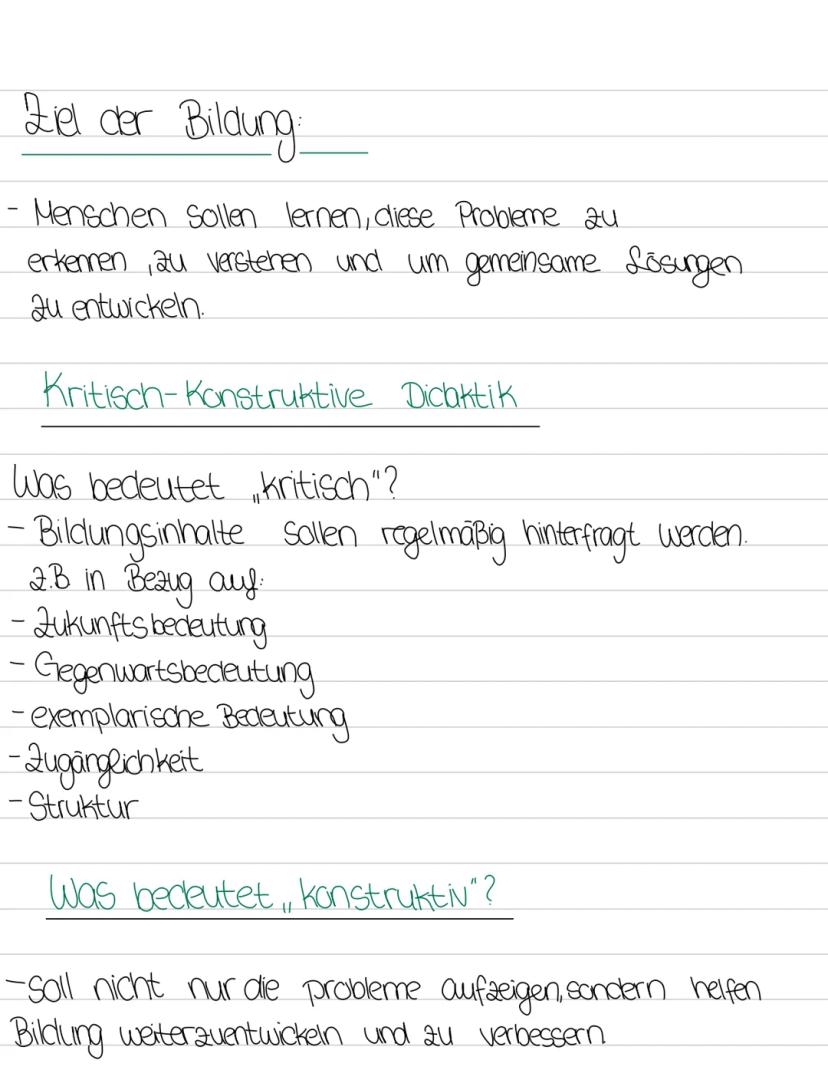 Ziel der Bildung:
- Menschen sollen lernen, diese Probleme zu
erkennen, zu verstehen und um gemeinsame Lösungen
zu entwickeln.
Kritisch-Konstruktive Didaktik
Was bedeutet „kritisch"?
- Bildungsinhalte sollen regelmäßig hinterfragt werden.
z.B in Bezug auf:
- Zukunftsbedeutung
- Gegenwartsbedeutung
- exemplarische Bedeutung
- Zugänglichkeit
- Struktur
Was bedeutet „konstruktiv"?
- Soll nicht nur die probleme aufzeigen, sondern helfen
Bildung weiterzuentwickeln und zu verbessern